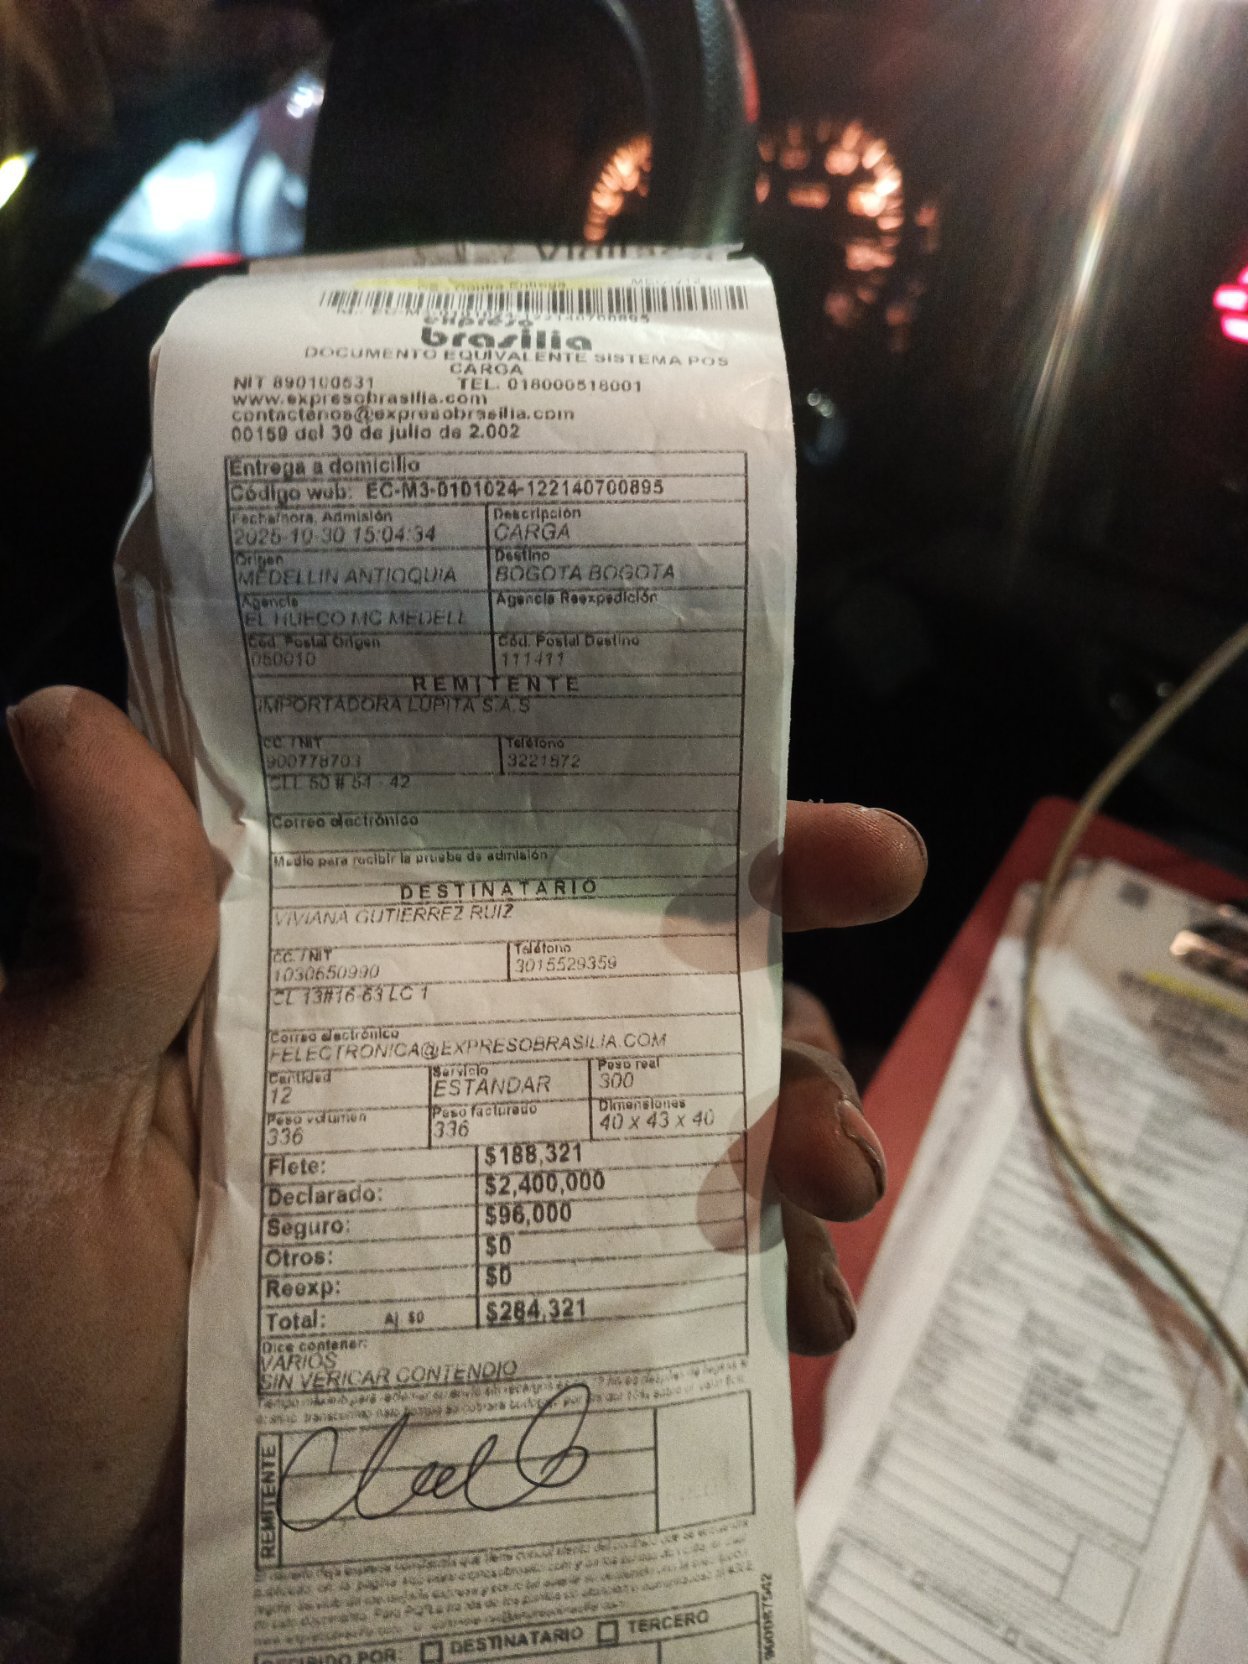 Contra Entrega
expreso
brasilia
DOCUMENTO EQUIVALENTE SISTEMA POS
CARGA
NIT 890100531 TEL. 018000518001
www.expresobrasilia.com
contactenos@expresobrasilia.com
00159 del 30 de julio de 2.002
Entrega a domicilio
Código web: EC-M3-0101024-122140700895
Fecha/hora. Admisión Descripción
2025-10-30 15:04:34 CARGA
Origen Destino
MEDELLIN ANTIOQUIA BOGOTA BOGOTA
Agencia Agencia Reexpedición
EL HUECO MC MEDELL
Cód. Postal Origen Cód. Postal Destino
050010 111411
REMITENTE
IMPORTADORA LUPITA S.A.S
CC. / NIT Teléfono
900778703 3221872
CLL 50 # 54 - 42
Correo electrónico
Medio para recibir la prueba de admisión
DESTINATARIO
VIVIANA GUTIERREZ RUIZ
CC. / NIT Teléfono
1030650990 3015529359
CL 13#16-63 LC 1
Correo electrónico
FELECTRONICA@EXPRESOBRASILIA.COM
Cantidad Servicio Peso real
12 ESTANDAR 300
Peso volumen Peso facturado Dimensiones
336 336 40 x 43 x 40
Flete: $188,321
Declarado: $2,400,000
Seguro: $96,000
Otros: $0
Reexp: $0
Total: Aj $0 $284,321
Dice contener:
VARIOS
SIN VERICAR CONTENDIO
REMITENTE
RECIBIDO POR: DESTINATARIO TERCERO